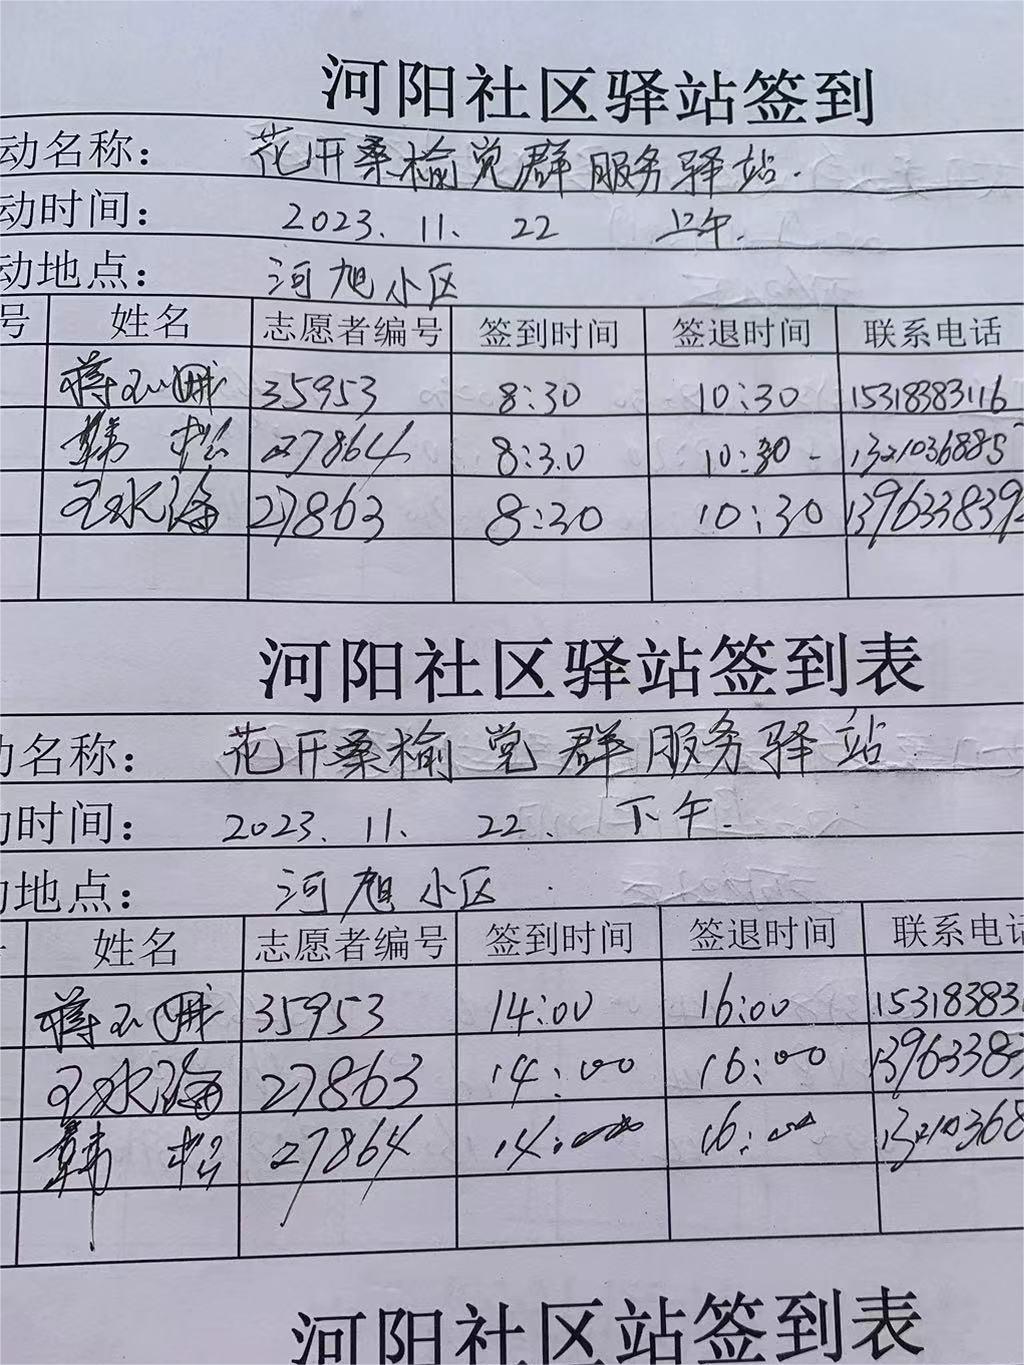 河阳社区驿站签到
动名称： 花开桑榆党群服务驿站.
动时间： 2023. 11. 22 上午.
动地点： 河旭小区
号 姓名 志愿者编号 签到时间 签退时间 联系电话
35953 8:30 10:30 15318383116
韩松 27864 8:30 10:30 - 1321036885
王永海 27863 8:30 10:30 1396338392
河阳社区驿站签到表
动名称： 花开桑榆党群服务驿站
动时间： 2023. 11. 22. 下午.
动地点： 河旭小区
姓名 志愿者编号 签到时间 签退时间 联系电话
35953 14:00 16:00 153183831
王永海 27863 14:00 16:00 13963383
韩松 27864 14:00 16:00 13210368
河阳社区驿站签到表